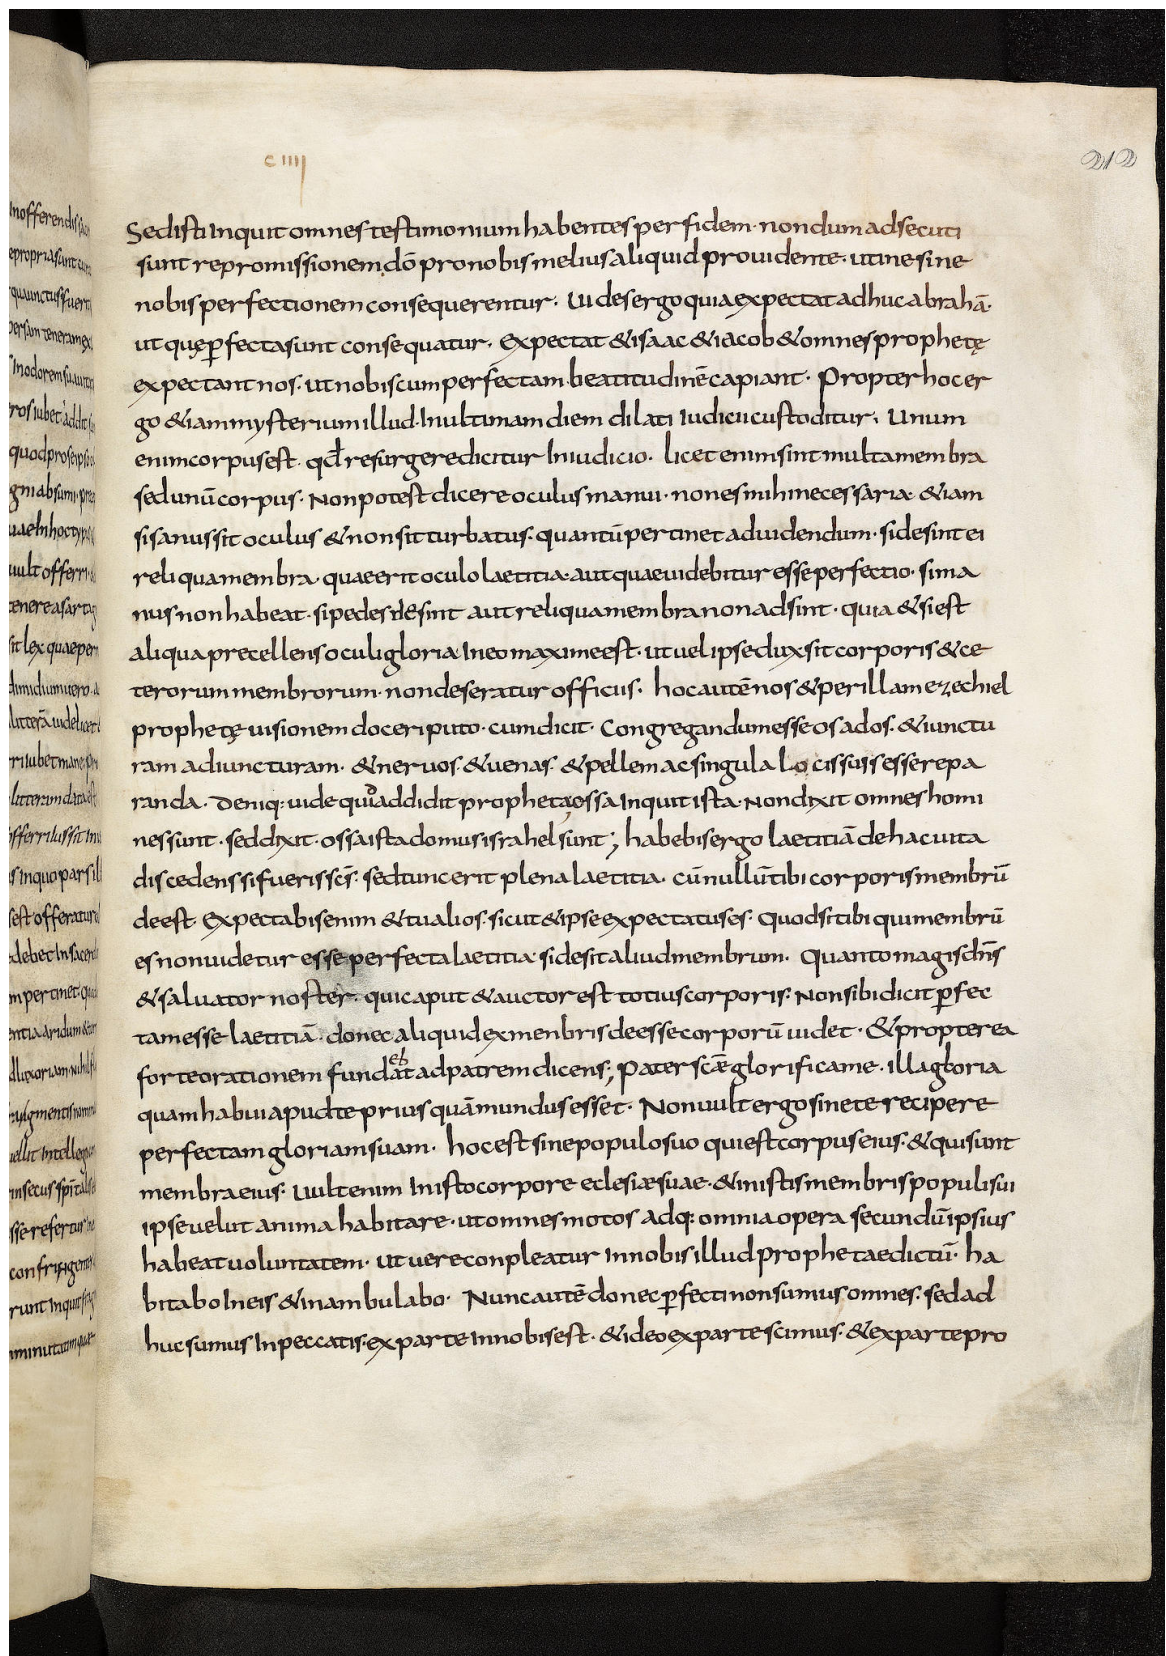 c iiii
212
Sed isti inquit omnes testimonium habentes per fidem· nondum adsecuti
sunt repromissionem dō pro nobis melius aliquid providente· ut ne sine
nobis perfectionem consequerentur· Uides ergo quia expectat adhuc abrahā·
ut quę ꝑfecta sunt consequatur· expectat & isaac & iacob & omnes prophetę
expectant nos· ut nobiscum perfectam beatitudinē capiant· Propter hoc er
go & iam mysterium illud· In ultimam diem dilati Iudicii custoditur· Unum
enim corpus est· qd̄ resurgere dicitur In iudicio· licet enim sint multa membra
sed unū corpus· Non potest dicere oculus manui· non es mihi necessaria· & iam
si sanus sit oculus & non sit turbatus· quantū pertinet ad uidendum· si desint ei
reliqua membra· quae erit oculo laetitia· aut quae uidebitur esse perfectio· si ma
nus non habeat· si pedes desint aut reliqua membra non adsint· quia & si est
aliqua precellens oculi gloria In eo maxime est· ut uel ipse dux sit corporis & ce
terorum membrorum· non deseratur officiis· hoc autē nos & per illam ezechiel
prophetę uisionem doceri puto· cum dicit· Congregandum esse os ad os· & iunctu
ram ad iuncturam· & neruos· & uenas· & pellem ac singula locis suis esse repa
randa· Deniq: uide quid addidit propheta, ossa Inquit ista· Non dixit omnes homi
nes sunt· sed dixit· ossa ista domus israhel sunt; habebis ergo laetitiā de hac uita
discedens si fueris scs̄· sed tunc erit plena laetitia· cū nullū tibi corporis membrū
deest· expectabis enim & tu alios· sicut & ipse expectatus es· Quod si tibi qui membrū
es non uidetur esse perfecta laetitia si desit aliud membrum· Quanto magis dn̄s
& saluator noster· qui caput & auctor est totius corporis· Non sibi dicit ꝑfec
tam esse laetitiā· donec aliquid ex menbris deesse corporū uidet· & propterea
forte orationem fundat ad patrem dicens; Pater scāe glorifica me· illa gloria
eb
quam habui apud te prius quā mundus esset· Non uult ergo sine te recipere
perfectam gloriam suam· hoc est sine populo suo qui est corpus eius· & qui sunt
membra eius· Uult enim In isto corpore eclesiæ suae· & in istis membris populi sui
ipse uelut anima habitare· ut omnes motos adq: omnia opera secundū ipsius
habeat uoluntatem· ut uere conpleatur In nobis illud prophetae dictū· ha
bitabo In eis & inambulabo· Nunc autē donec ꝑfecti non sumus omnes· sed ad
huc sumus In peccatis· ex parte In nobis est· & ideo ex parte scimus· & ex parte pro